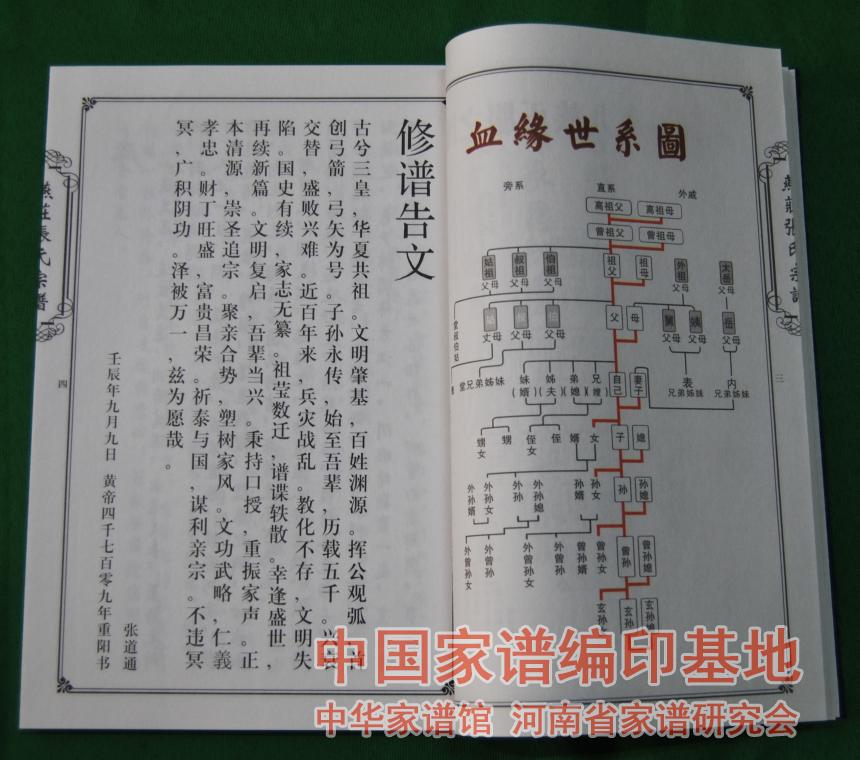 血緣世系圖
旁系 直系 外戚
高祖父 高祖母
曾祖父 曾祖母
姑祖父母 叔祖父母 伯祖父母 祖父 祖母 外祖父母 太岳父母
堂叔伯姑
丈母 父母 父母 父 母 舅父母 姨父母 岳父母
堂兄弟姊妹 妹(婿) 姊(夫) 弟(媳) 兄(嫂) 自己 妻子 表兄弟姊妹 内兄弟姊妹
甥女 甥 侄女 侄 婿 女 子 媳
外孙婿 外孙女 外孙 外孙媳 孙婿 孙女 孙 孙媳
外曾孙女 外曾孙 外曾孙女 外曾孙 曾孙婿 曾孙女 曾孙 曾孙媳
玄孙女 玄孙 玄孙媳
三
修谱告文
古兮三皇，华夏共祖。文明肇基，百姓渊源。挥公观弧，首
创弓箭，弓矢为号。子孙永传，始至吾辈，历载五千。兴衰
交替，盛败兴难。近百年来，兵灾战乱。教化不存，文明失
陷。国史有续，家志无纂。祖莹数迁，谱谍轶散。幸逢盛世，
再续新篇。文明复启，吾辈当兴。秉持口授，重振家声。正
本清源，崇圣追宗。聚亲合势，塑树家风。文功武略，仁義
孝忠。财丁旺盛，富贵昌荣。祈泰与国，谋利亲宗。不违冥
冥，广积阴功。泽被万一，兹为愿哉。
张道通
壬辰年九月九日 黄帝四千七百零九年重阳书
燕莊張氏宗譜
四
中国家谱编印基地
中华家谱馆 河南省家谱研究会